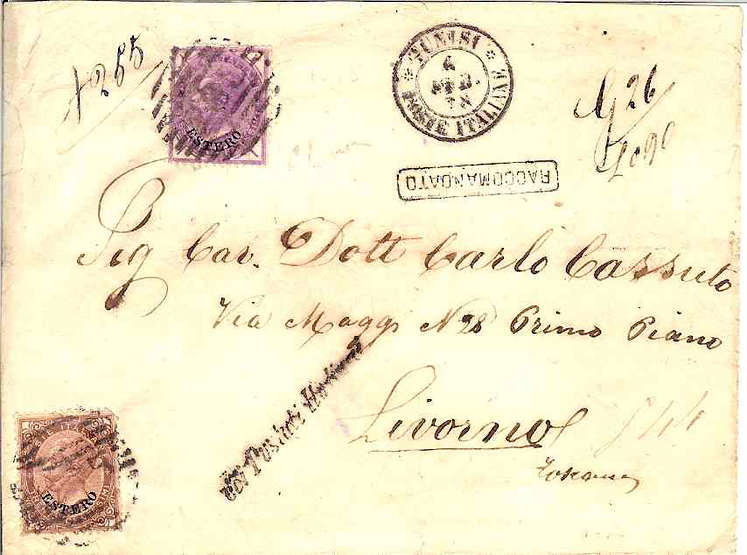 +255
ESTERO
TUNISI
6
FEB.
78
POSTE ITALIANE
RACCOMANDATO
26
Sig Cav. Dott Carlo Cassuto
Via Maggi N28 Primo Piano
Livorno
Toscana
Coi Postali Italiani
ESTERO